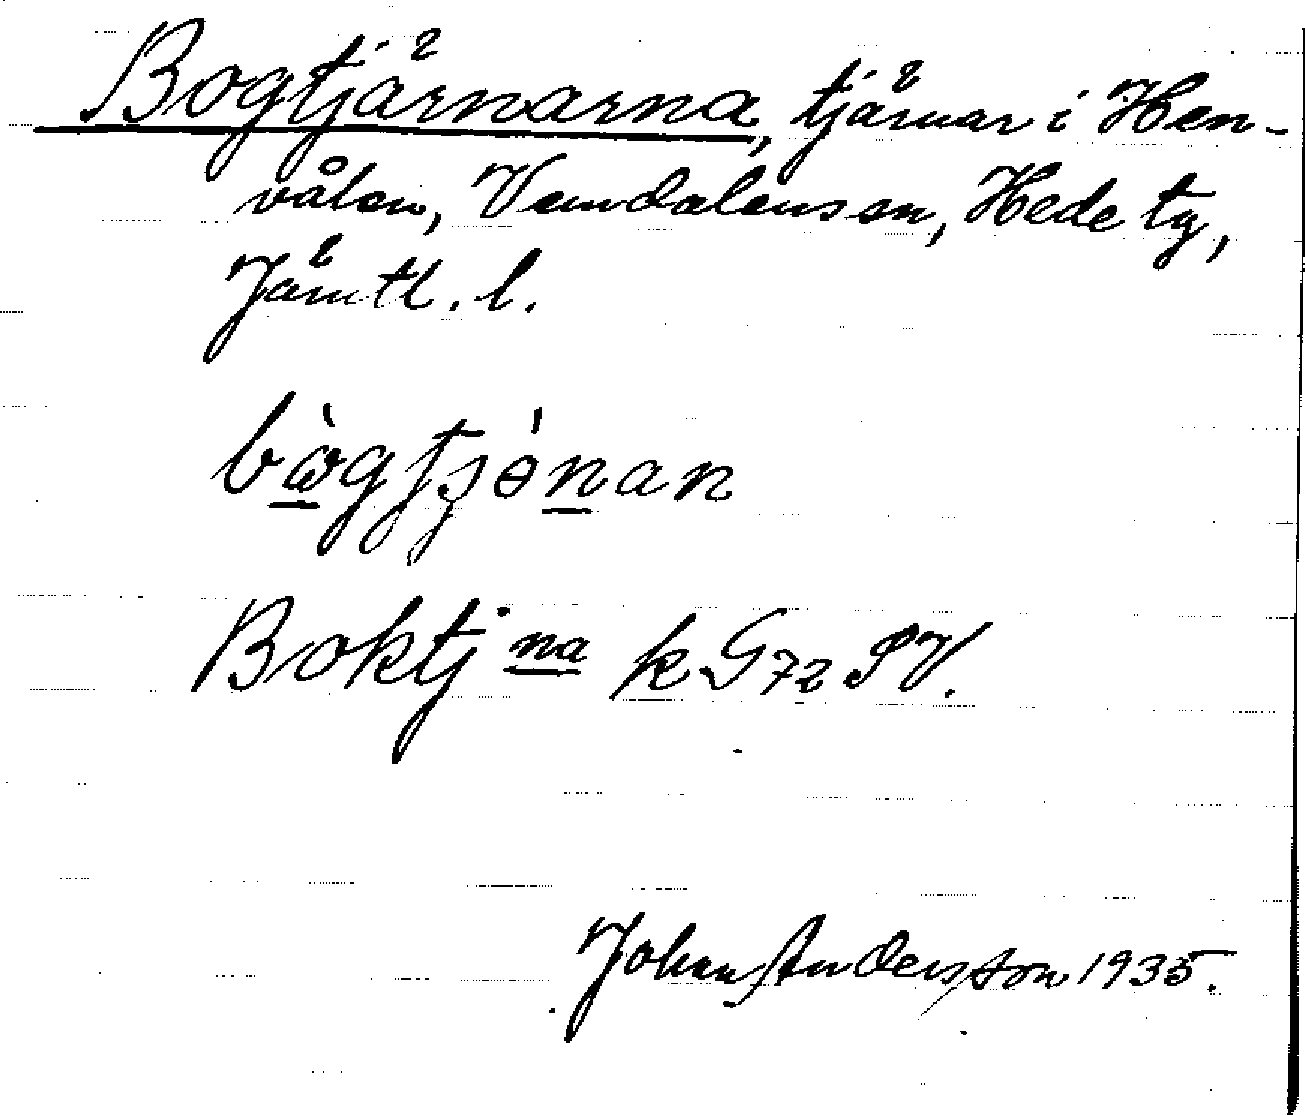 Bogtjärnarna, tjärnar i Hen-
vålen, Vemdalens sn, Hede tg,
Jämtl. l.
bògtʃɵ́nan
Boktj:na k G72 SV.
Johan Andersson 1935.